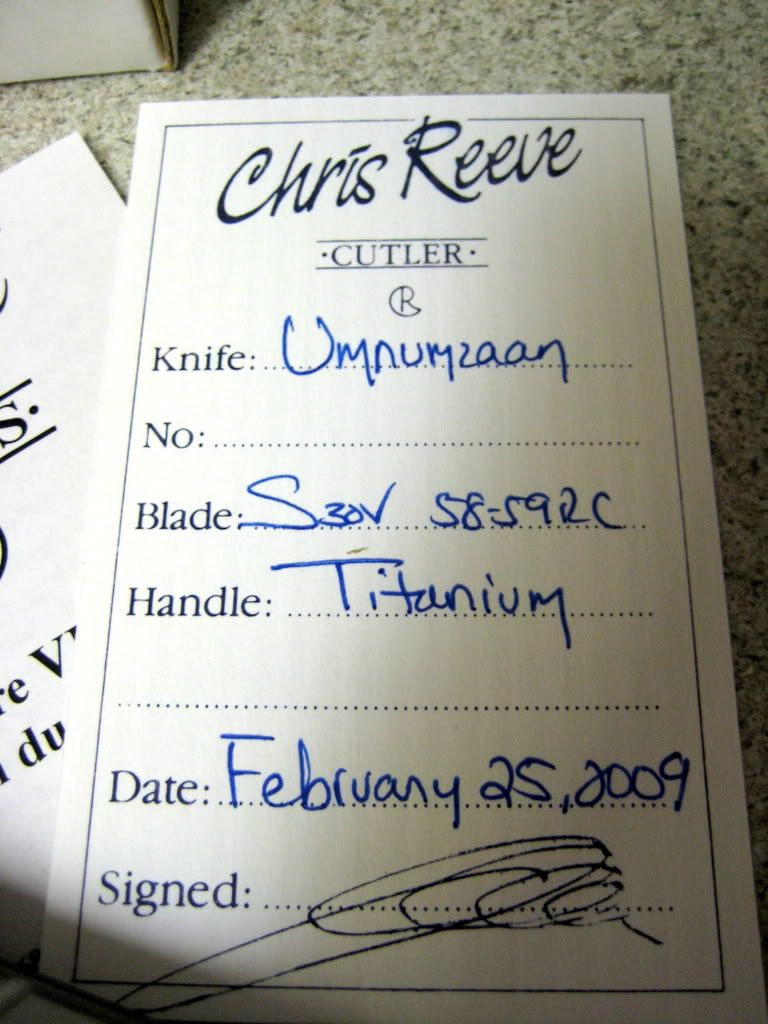 Chris Reeve
·CUTLER·
CR
Knife: Umnumzaan
No:
Blade: S30V 58-59RC
Handle: Titanium
Date: February 25, 2009
Signed:
s:
re V
du